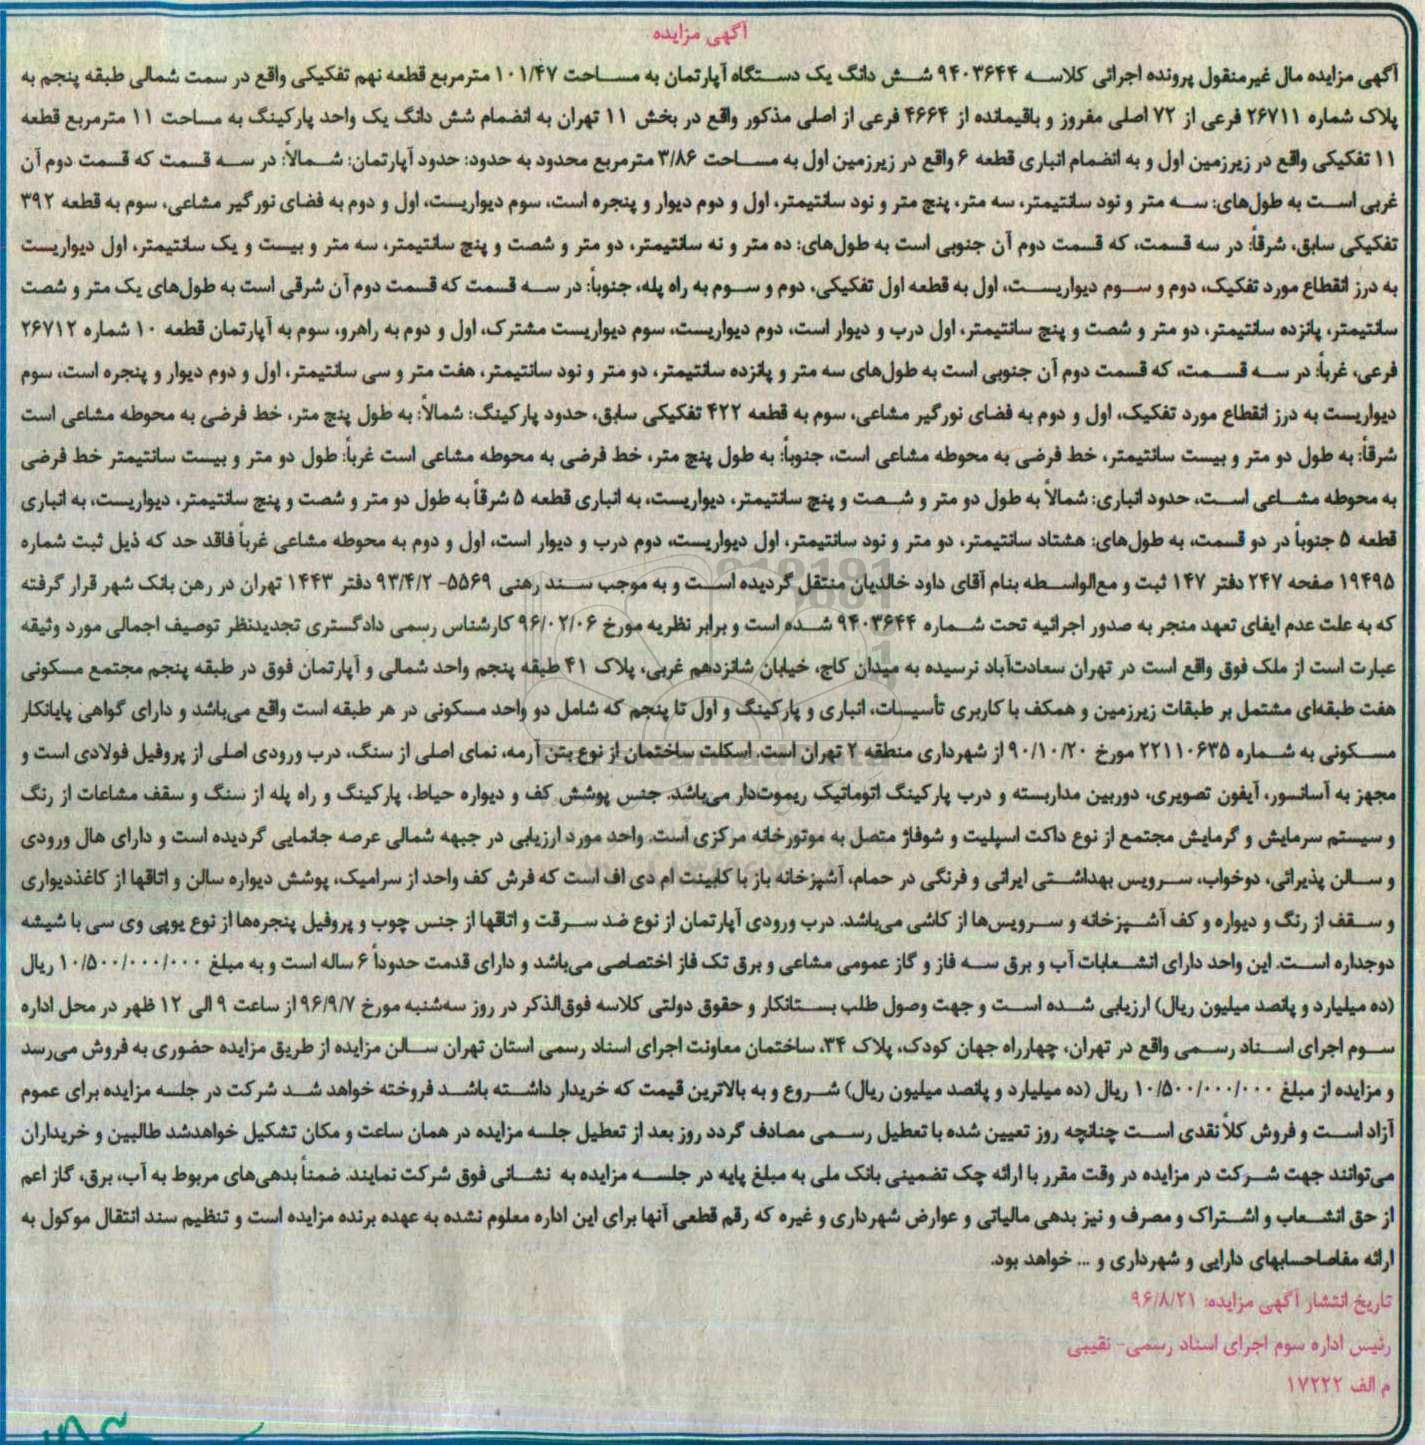 آگهی مزایده
آگهی مزایده مال غیرمنقول پرونده اجرائی کلاسه ۹۴۰۳۶۴۴ شش دانگ یک دستگاه آپارتمان به مساحت ۱۰۱/۴۷ مترمربع قطعه نهم تفکیکی واقع در سمت شمالی طبقه پنجم به
پلاک شماره ۲۶۷۱۱ فرعی از ۷۲ اصلی مفروز و باقیمانده از ۴۶۶۴ فرعی از اصلی مذکور واقع در بخش ۱۱ تهران به انضمام شش دانگ یک واحد پارکینگ به مساحت ۱۱ مترمربع قطعه
۱۱ تفکیکی واقع در زیرزمین اول و به انضمام انباری قطعه ۶ واقع در زیرزمین اول به مساحت ۳/۸۶ مترمربع محدود به حدود: حدود آپارتمان: شمالاً: در سه قسمت که قسمت دوم آن
غربی است به طول‌های: سه متر و نود سانتیمتر، سه متر، پنج متر و نود سانتیمتر، اول و دوم دیوار و پنجره است، سوم دیواریست، اول و دوم به فضای نورگیر مشاعی، سوم به قطعه ۳۹۲
تفکیکی سابق، شرقاً: در سه قسمت، که قسمت دوم آن جنوبی است به طول‌های: ده متر و نه سانتیمتر، دو متر و شصت و پنج سانتیمتر، سه متر و بیست و یک سانتیمتر، اول دیواریست
به درز انقطاع مورد تفکیک، دوم و سوم دیواریست، اول به قطعه اول تفکیکی، دوم و سوم به راه پله، جنوباً: در سه قسمت که قسمت دوم آن شرقی است به طول‌های یک متر و شصت
سانتیمتر، پانزده سانتیمتر، دو متر و شصت و پنج سانتیمتر، اول درب و دیوار است، دوم دیواریست، سوم دیواریست مشترک، اول و دوم به راهرو، سوم به آپارتمان قطعه ۱۰ شماره ۲۶۷۱۲
فرعی، غرباً: در سه قسمت، که قسمت دوم آن جنوبی است به طول‌های سه متر و پانزده سانتیمتر، دو متر و نود سانتیمتر، هفت متر و سی سانتیمتر، اول و دوم دیوار و پنجره است، سوم
دیواریست به درز انقطاع مورد تفکیک، اول و دوم به فضای نورگیر مشاعی، سوم به قطعه ۴۲۲ تفکیکی سابق، حدود پارکینگ: شمالاً: به طول پنج متر، خط فرضی به محوطه مشاعی است
شرقاً: به طول دو متر و بیست سانتیمتر، خط فرضی به محوطه مشاعی است، جنوباً: به طول پنج متر، خط فرضی به محوطه مشاعی است غرباً: طول دو متر و بیست سانتیمتر خط فرضی
به محوطه مشاعی است، حدود انباری: شمالاً به طول دو متر و شصت و پنج سانتیمتر، دیواریست، به انباری قطعه ۵ شرقاً به طول دو متر و شصت و پنج سانتیمتر، دیواریست، به انباری
قطعه ۵ جنوباً در دو قسمت، به طول‌های: هشتاد سانتیمتر، دو متر و نود سانتیمتر، اول دیواریست، دوم درب و دیوار است، اول و دوم به محوطه مشاعی غرباً فاقد حد که ذیل ثبت شماره
۱۹۴۹۵ صفحه ۲۴۷ دفتر ۱۴۷ ثبت و مع‌الواسطه بنام آقای داود خالدیان منتقل گردیده است و به موجب سند رهنی ۵۵۶۹- ۹۳/۴/۲ دفتر ۱۴۴۳ تهران در رهن بانک شهر قرار گرفته
که به علت عدم ایفای تعهد منجر به صدور اجرائیه تحت شماره ۹۴۰۳۶۴۴ شده است و برابر نظریه مورخ ۹۶/۰۲/۰۶ کارشناس رسمی دادگستری تجدیدنظر توصیف اجمالی مورد وثیقه
عبارت است از ملک فوق واقع است در تهران سعادت‌آباد نرسیده به میدان کاج، خیابان شانزدهم غربی، پلاک ۴۱ طبقه پنجم واحد شمالی و آپارتمان فوق در طبقه پنجم مجتمع مسکونی
هفت طبقه‌ای مشتمل بر طبقات زیرزمین و همکف با کاربری تأسیسات، انباری و پارکینگ و اول تا پنجم که شامل دو واحد مسکونی در هر طبقه است واقع می‌باشد و دارای گواهی پایانکار
مسکونی به شماره ۲۲۱۱۰۶۳۵ مورخ ۹۰/۱۰/۲۰ از شهرداری منطقه ۲ تهران است. اسکلت ساختمان از نوع بتن آرمه، نمای اصلی از سنگ، درب ورودی اصلی از پروفیل فولادی است و
مجهز به آسانسور، آیفون تصویری، دوربین مداربسته و درب پارکینگ اتوماتیک ریموت‌دار می‌باشد. جنس پوشش کف و دیواره حیاط، پارکینگ و راه پله از سنگ و سقف مشاعات از رنگ
و سیستم سرمایش و گرمایش مجتمع از نوع داکت اسپلیت و شوفاژ متصل به موتورخانه مرکزی است. واحد مورد ارزیابی در جبهه شمالی عرصه جانمایی گردیده است و دارای هال ورودی
و سالن پذیرائی، دوخواب، سرویس بهداشتی ایرانی و فرنگی در حمام، آشپزخانه باز با کابینت ام دی اف است که فرش کف واحد از سرامیک، پوشش دیواره سالن و اتاقها از کاغذدیواری
و سقف از رنگ و دیواره و کف آشپزخانه و سرویس‌ها از کاشی می‌باشد. درب ورودی آپارتمان از نوع ضد سرقت و اتاقها از جنس چوب و پروفیل پنجره‌ها از نوع یوپی وی سی با شیشه
دوجداره است. این واحد دارای انشعابات آب و برق سه فاز و گاز عمومی مشاعی و برق تک فاز اختصاصی می‌باشد و دارای قدمت حدوداً ۶ ساله است و به مبلغ ۱۰/۵۰۰/۰۰۰/۰۰۰ ریال
(ده میلیارد و پانصد میلیون ریال) ارزیابی شده است و جهت وصول طلب بستانکار و حقوق دولتی کلاسه فوق‌الذکر در روز سه‌شنبه مورخ ۹۶/۹/۷ از ساعت ۹ الی ۱۲ ظهر در محل اداره
سوم اجرای اسناد رسمی واقع در تهران، چهارراه جهان کودک، پلاک ۳۴، ساختمان معاونت اجرای اسناد رسمی استان تهران سالن مزایده از طریق مزایده حضوری به فروش می‌رسد
و مزایده از مبلغ ۱۰/۵۰۰/۰۰۰/۰۰۰ ریال (ده میلیارد و پانصد میلیون ریال) شروع و به بالاترین قیمت که خریدار داشته باشد فروخته خواهد شد شرکت در جلسه مزایده برای عموم
آزاد است و فروش کلاً نقدی است چنانچه روز تعیین شده با تعطیل رسمی مصادف گردد روز بعد از تعطیل جلسه مزایده در همان ساعت و مکان تشکیل خواهدشد طالبین و خریداران
می‌توانند جهت شرکت در مزایده در وقت مقرر با ارائه چک تضمینی بانک ملی به مبلغ پایه در جلسه مزایده به نشانی فوق شرکت نمایند. ضمناً بدهی‌های مربوط به آب، برق، گاز اعم
از حق انشعاب و اشتراک و مصرف و نیز بدهی مالیاتی و عوارض شهرداری و غیره که رقم قطعی آنها برای این اداره معلوم نشده به عهده برنده مزایده است و تنظیم سند انتقال موکول به
ارائه مفاصاحسابهای دارایی و شهرداری و ... خواهد بود.
تاریخ انتشار آگهی مزایده: ۹۶/۸/۲۱
رئیس اداره سوم اجرای اسناد رسمی- نقیبی
م الف ۱۷۲۲۲